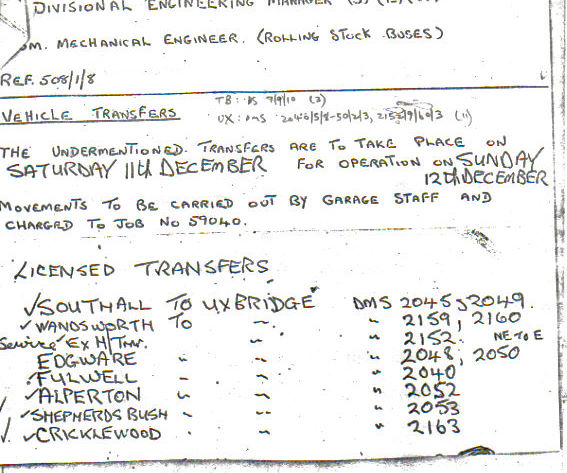 DIVISIONAL ENGINEERING MANAGER
M. MECHANICAL ENGINEER. (ROLLING STOCK BUSES)
REF. 508/1/8
TB: DS 7/9/10 (3)
VEHICLE TRANSFERS
UX: DMS 2040/5/8-50/2/3, (11)
THE UNDERMENTIONED TRANSFERS ARE TO TAKE PLACE ON
SATURDAY 11th DECEMBER FOR OPERATION ON SUNDAY
12th DECEMBER
MOVEMENTS TO BE CARRIED OUT BY GARAGE STAFF AND
CHARGED TO JOB No 59040.
LICENSED TRANSFERS
✓SOUTHALL TO UXBRIDGE DMS 2045, 2049.
✓WANDSWORTH TO " " 2159, 2160
Service Ex H/Tmr. " " 2152. NE TO E
EDGWARE " " " 2048, 2050
✓FULWELL " " " 2040
✓ALPERTON " " " 2052
✓SHEPHERDS BUSH " " " 2053
✓CRICKLEWOOD " " " 2163